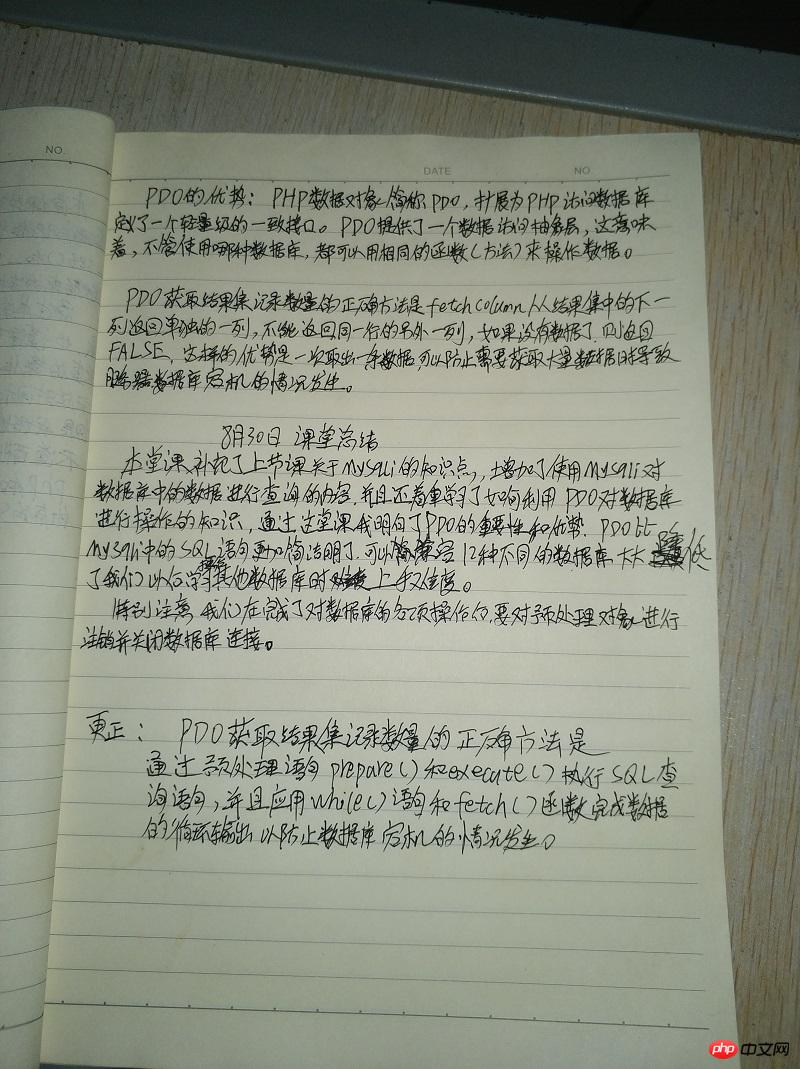 NO.
DATE
NO
PDO的优势: PHP数据对象简称PDO, 扩展为PHP访问数据库
定义了一个轻量级的一致接口。PDO提供了一个数据访问抽象层, 这意味
着, 不管使用哪种数据库, 都可以用相同的函数(方法)来操作数据。
PDO获取结果集记录数量的正确方法是fetchcolumn从结果集中的下一
列返回单独的一列, 不能返回同一行的另外一列, 如果没有数据了, 则返回
FALSE, 这样的优势是一次取出一条数据,可以防止需要获取大量数据时导致
服务器数据库宕机的情况发生。
8月30日 课堂总结
本堂课补充了上节课关于mysqli的知识点, 增加了使用mysqli对
数据库中的数据进行查询的内容,并且还着重学习了如何利用PDO对数据库
进行操作的知识, 通过这堂课我明白了PDO的重要性和优势. PDO比
mysqli中的SQL语句更加简洁明了,可以兼容12种不同的数据库 大大降低
了我们以后学习其他数据库时上手难度。
特别注意 我们在完成了对数据库的各项操作后,要对预处理对象进行
注销并关闭数据库连接。
更正: PDO获取结果集记录数量的正确方法是
通过预处理语句prepare()和execute()执行SQL查
询语句, 并且应用while()语句和fetch()函数完成数据
的循环输出以防止数据库宕机的情况发生。
php 中文网